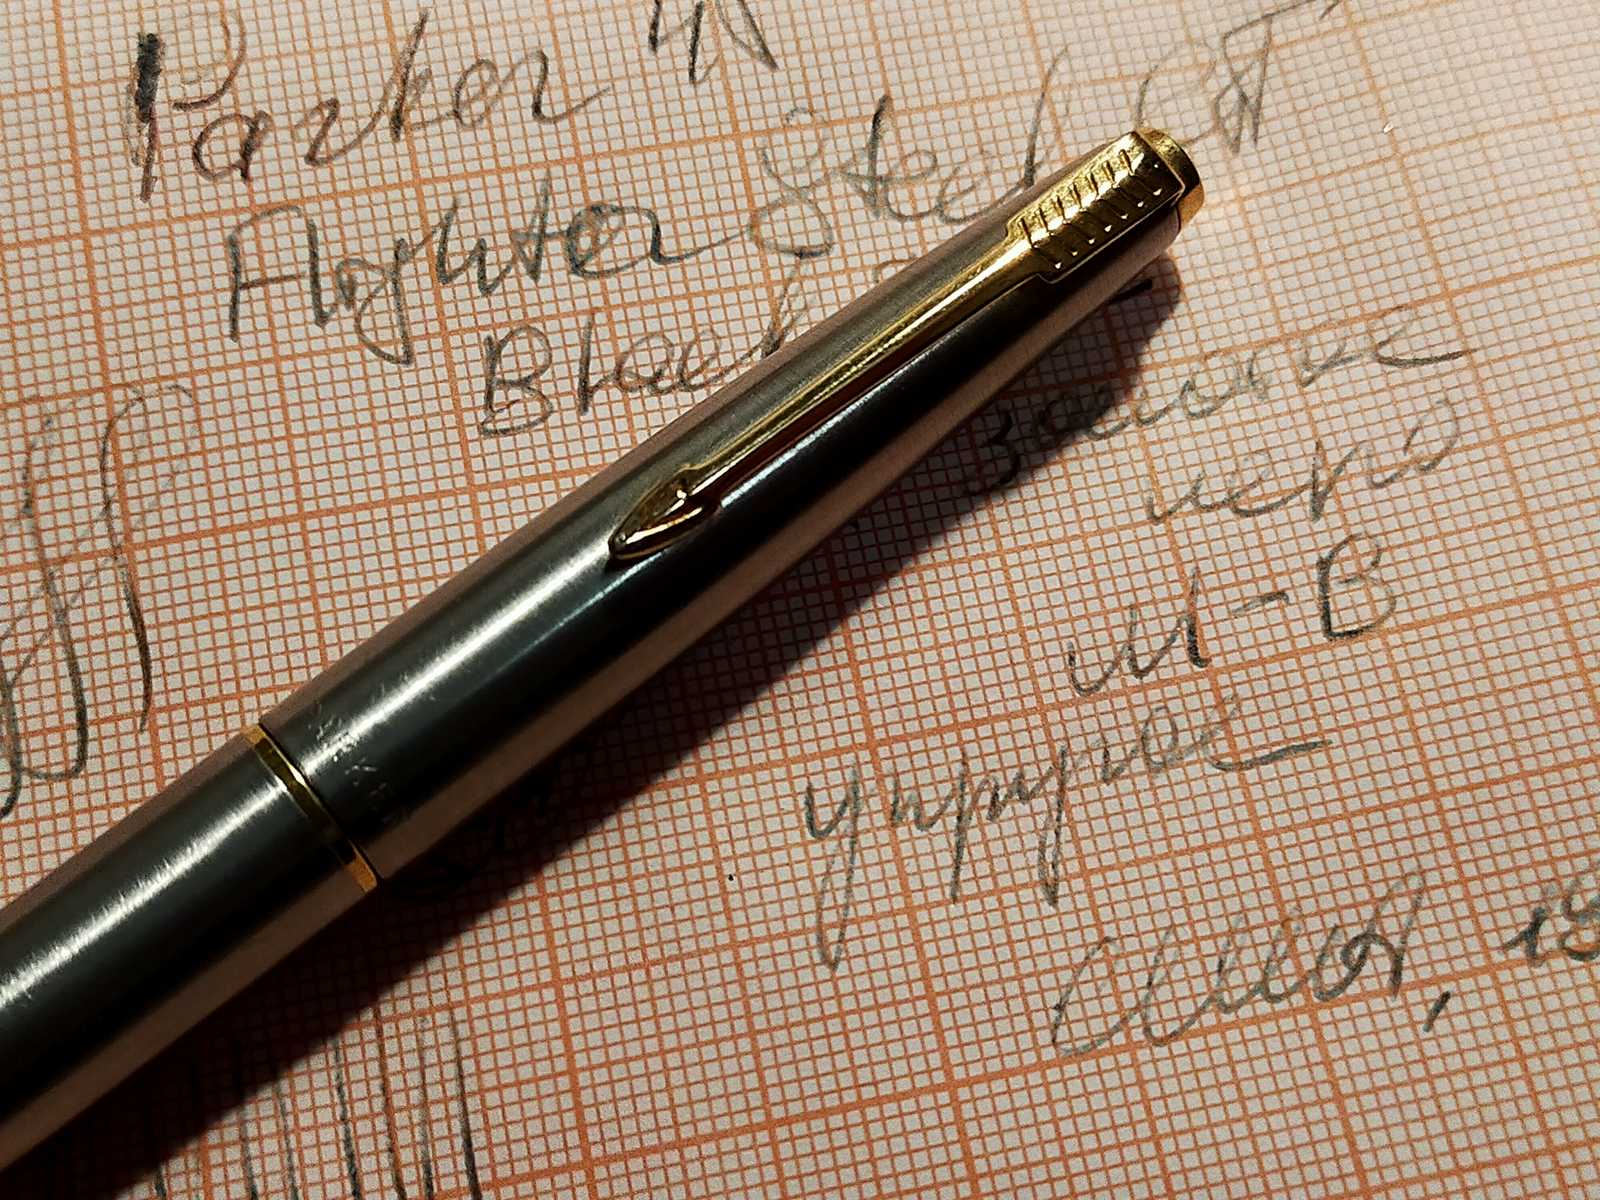 Parker 45
Flighter Steel GT
Black
Золотое
перо
M-B
упругое
PARKER